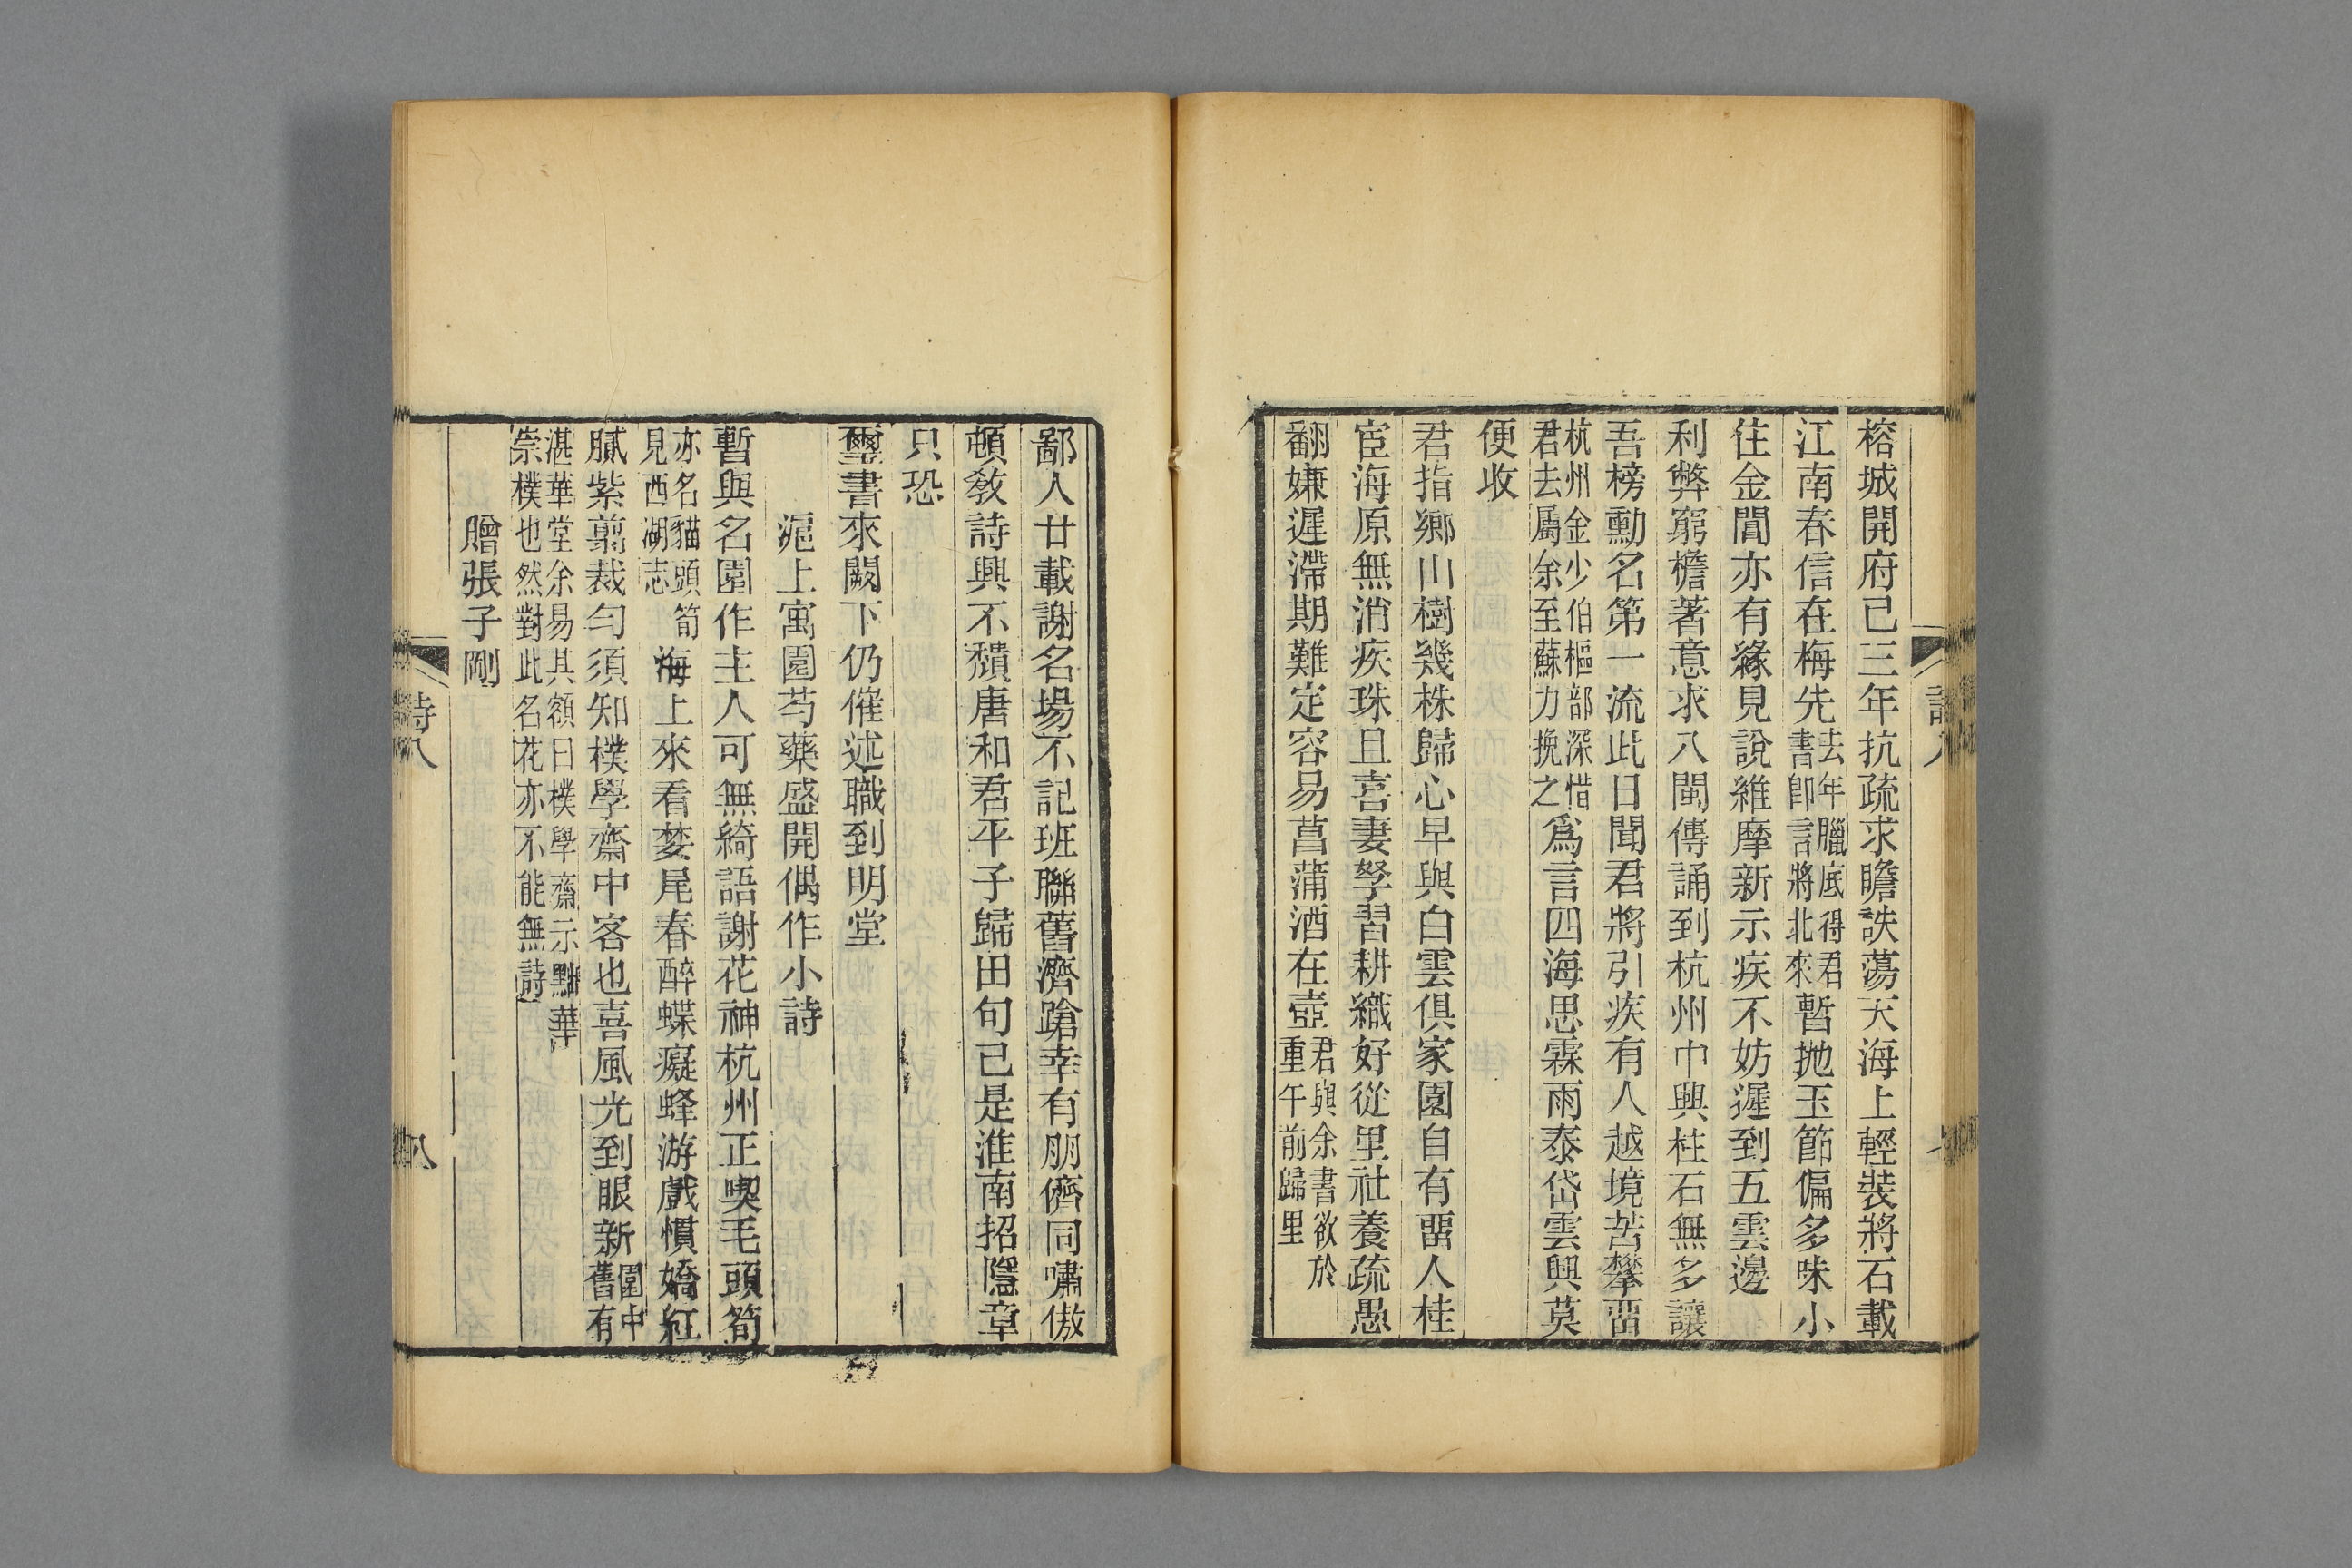 榕城開府已三年抗疏求瞻詄蕩天海上輕裝將石載
江南春信在梅先去年臘底得君書卽言將北來暫拋玉節偏多味小
住金閶亦有緣見說維摩新示疾不妨遲到五雲邊
利弊窮檐著意求八閩傳誦到杭州中興柱石無多讓
吾榜勳名第一流此日聞君將引疾有人越境苦攀畱
杭州金少伯樞部深惜君去屬余至蘇力挽之爲言四海思霖雨泰岱雲興莫
便收
君指鄉山樹幾株歸心早與白雲俱家園自有畱人桂
宦海原無消疾珠且喜妻孥習耕織好從里社養疏愚
翻嫌遲滯期難定容易菖蒲酒在壺君與余書欲於重午前歸里
鄙人廿載謝名場不記班聯舊濟蹌幸有朋儕同嘯傲
頓敎詩興不穨唐和君平子歸田句已是淮南招隱章
只恐
璽書來闕下仍催述職到明堂
滬上寓園芍藥盛開偶作小詩
暫與名園作主人可無綺語謝花神杭州正喫毛頭筍
亦名貓頭筍見西湖志海上來看婪尾春醉蝶癡蜂游戲慣嬌紅
膩紫翦裁勻須知樸學齋中客也喜風光到眼新園中舊有
湛華堂余易其額曰樸學齋示黜華崇樸也然對此名花亦不能無詩
贈張子剛
詩八
八